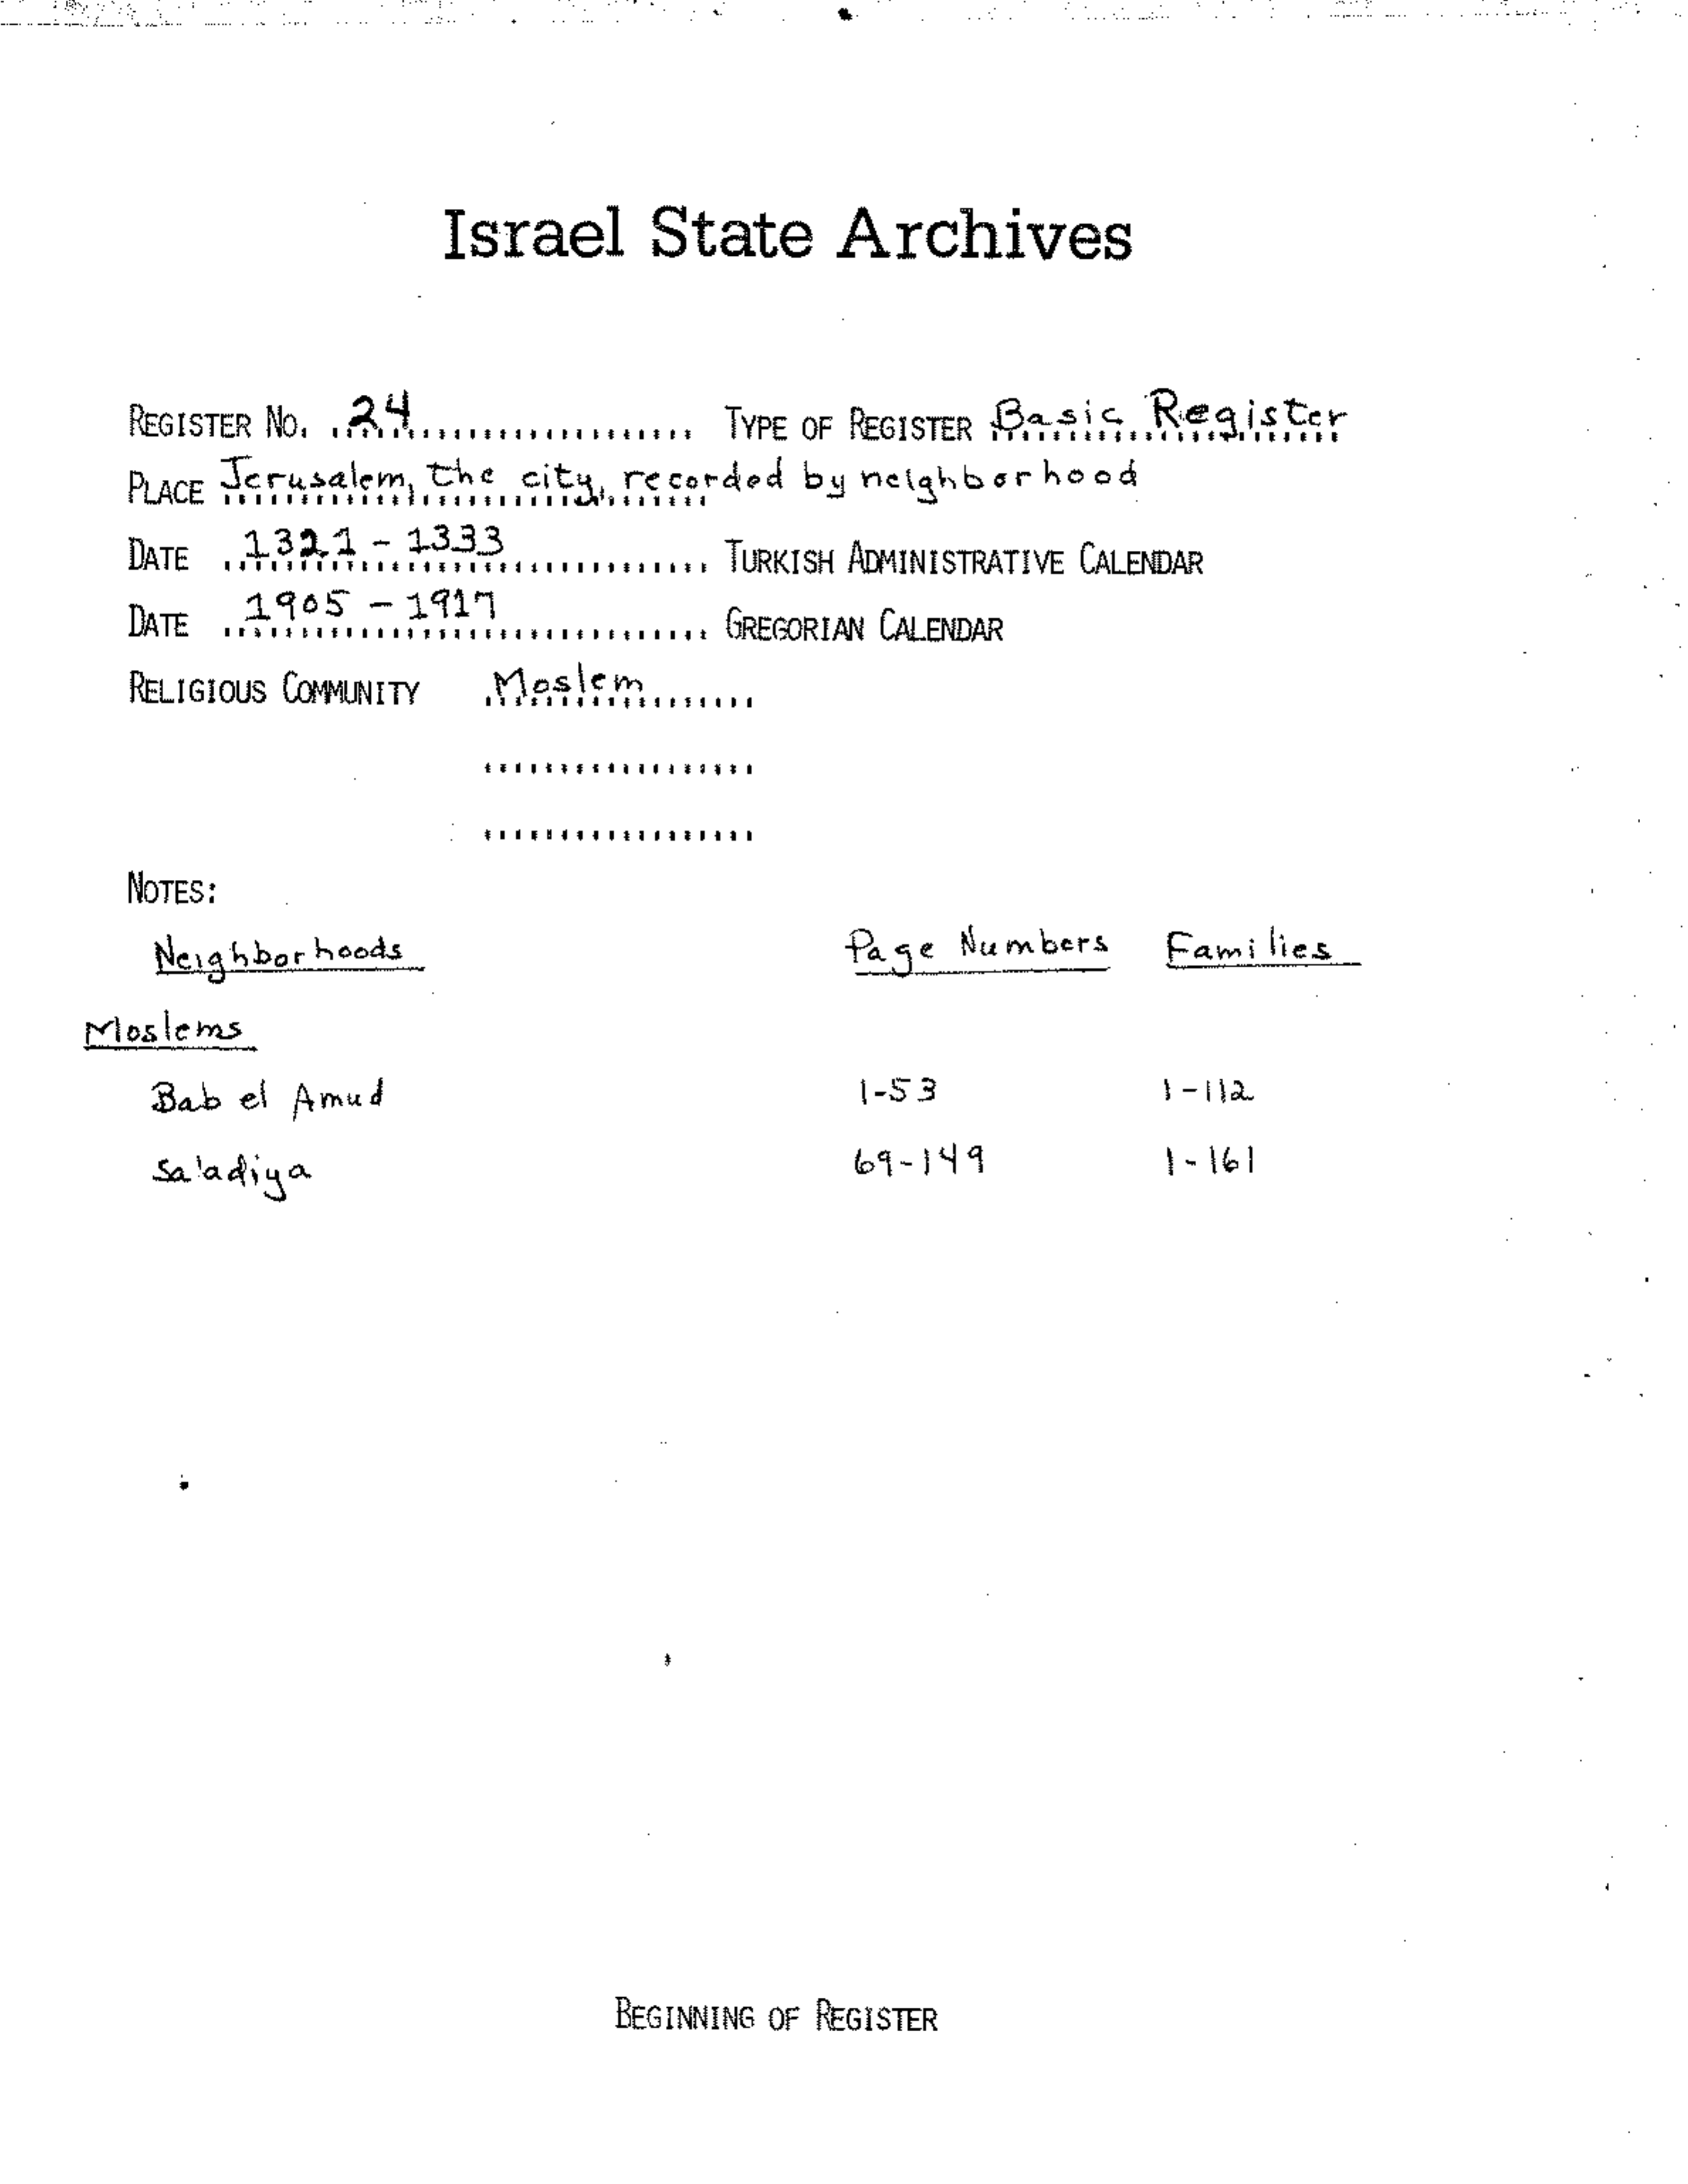 Israel State Archives
REGISTER NO. 24 TYPE OF REGISTER Basic Register
PLACE Jerusalem, the city, recorded by neighborhood
DATE 1321 - 1333 TURKISH ADMINISTRATIVE CALENDAR
DATE 1905 - 1917 GREGORIAN CALENDAR
RELIGIOUS COMMUNITY Moslem
NOTES:
Neighborhoods Page Numbers Families
Moslems
Bab el Amud 1-53 1-112
Sa'adiya 69-149 1-161
BEGINNING OF REGISTER